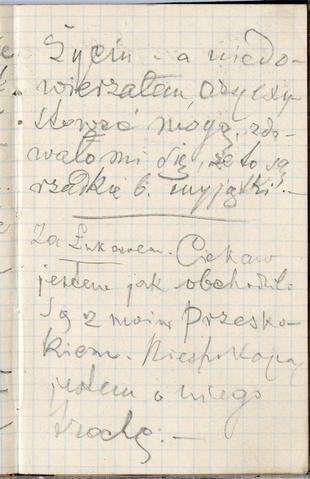 życiu – a niedo-
wierzałem, czy
stawać mogą, zda-
wało mi się, że to są
rzadkie b. wyjątki. –
Za Łukowem. Ciekaw
jestem jak obchodził
się z moim Przesko-
kiem. Niespokojny
jestem o niego
trochę. –